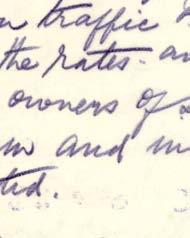 traffic
the rates. an
owners of
and
ted.